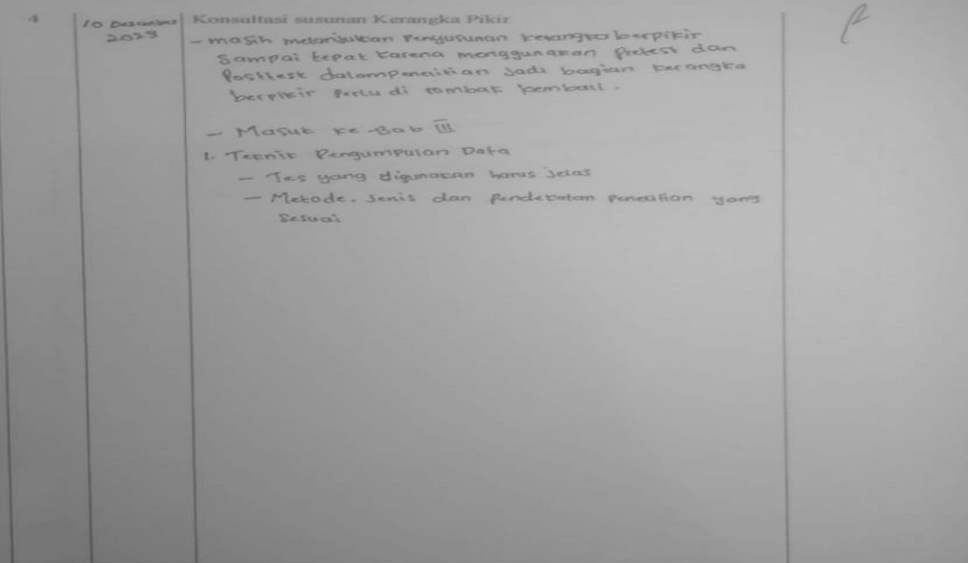 4
10 Desember
2023
Konsultasi susunan Kerangka Pikir
- masih melanjutkan Penyusunan kerangka berpikir
Sampai tepat karena menggunakan Pretest dan
Posttest dalam penelitian Jadi bagian kerangka
berpikir Perlu di rombak kembali.
- Masuk ke Bab III
1. Teknik Pengumpulan Data
- Tes yang digunakan harus Jelas
- Metode, Jenis dan Pendekatan Penelitian yang
Sesuai